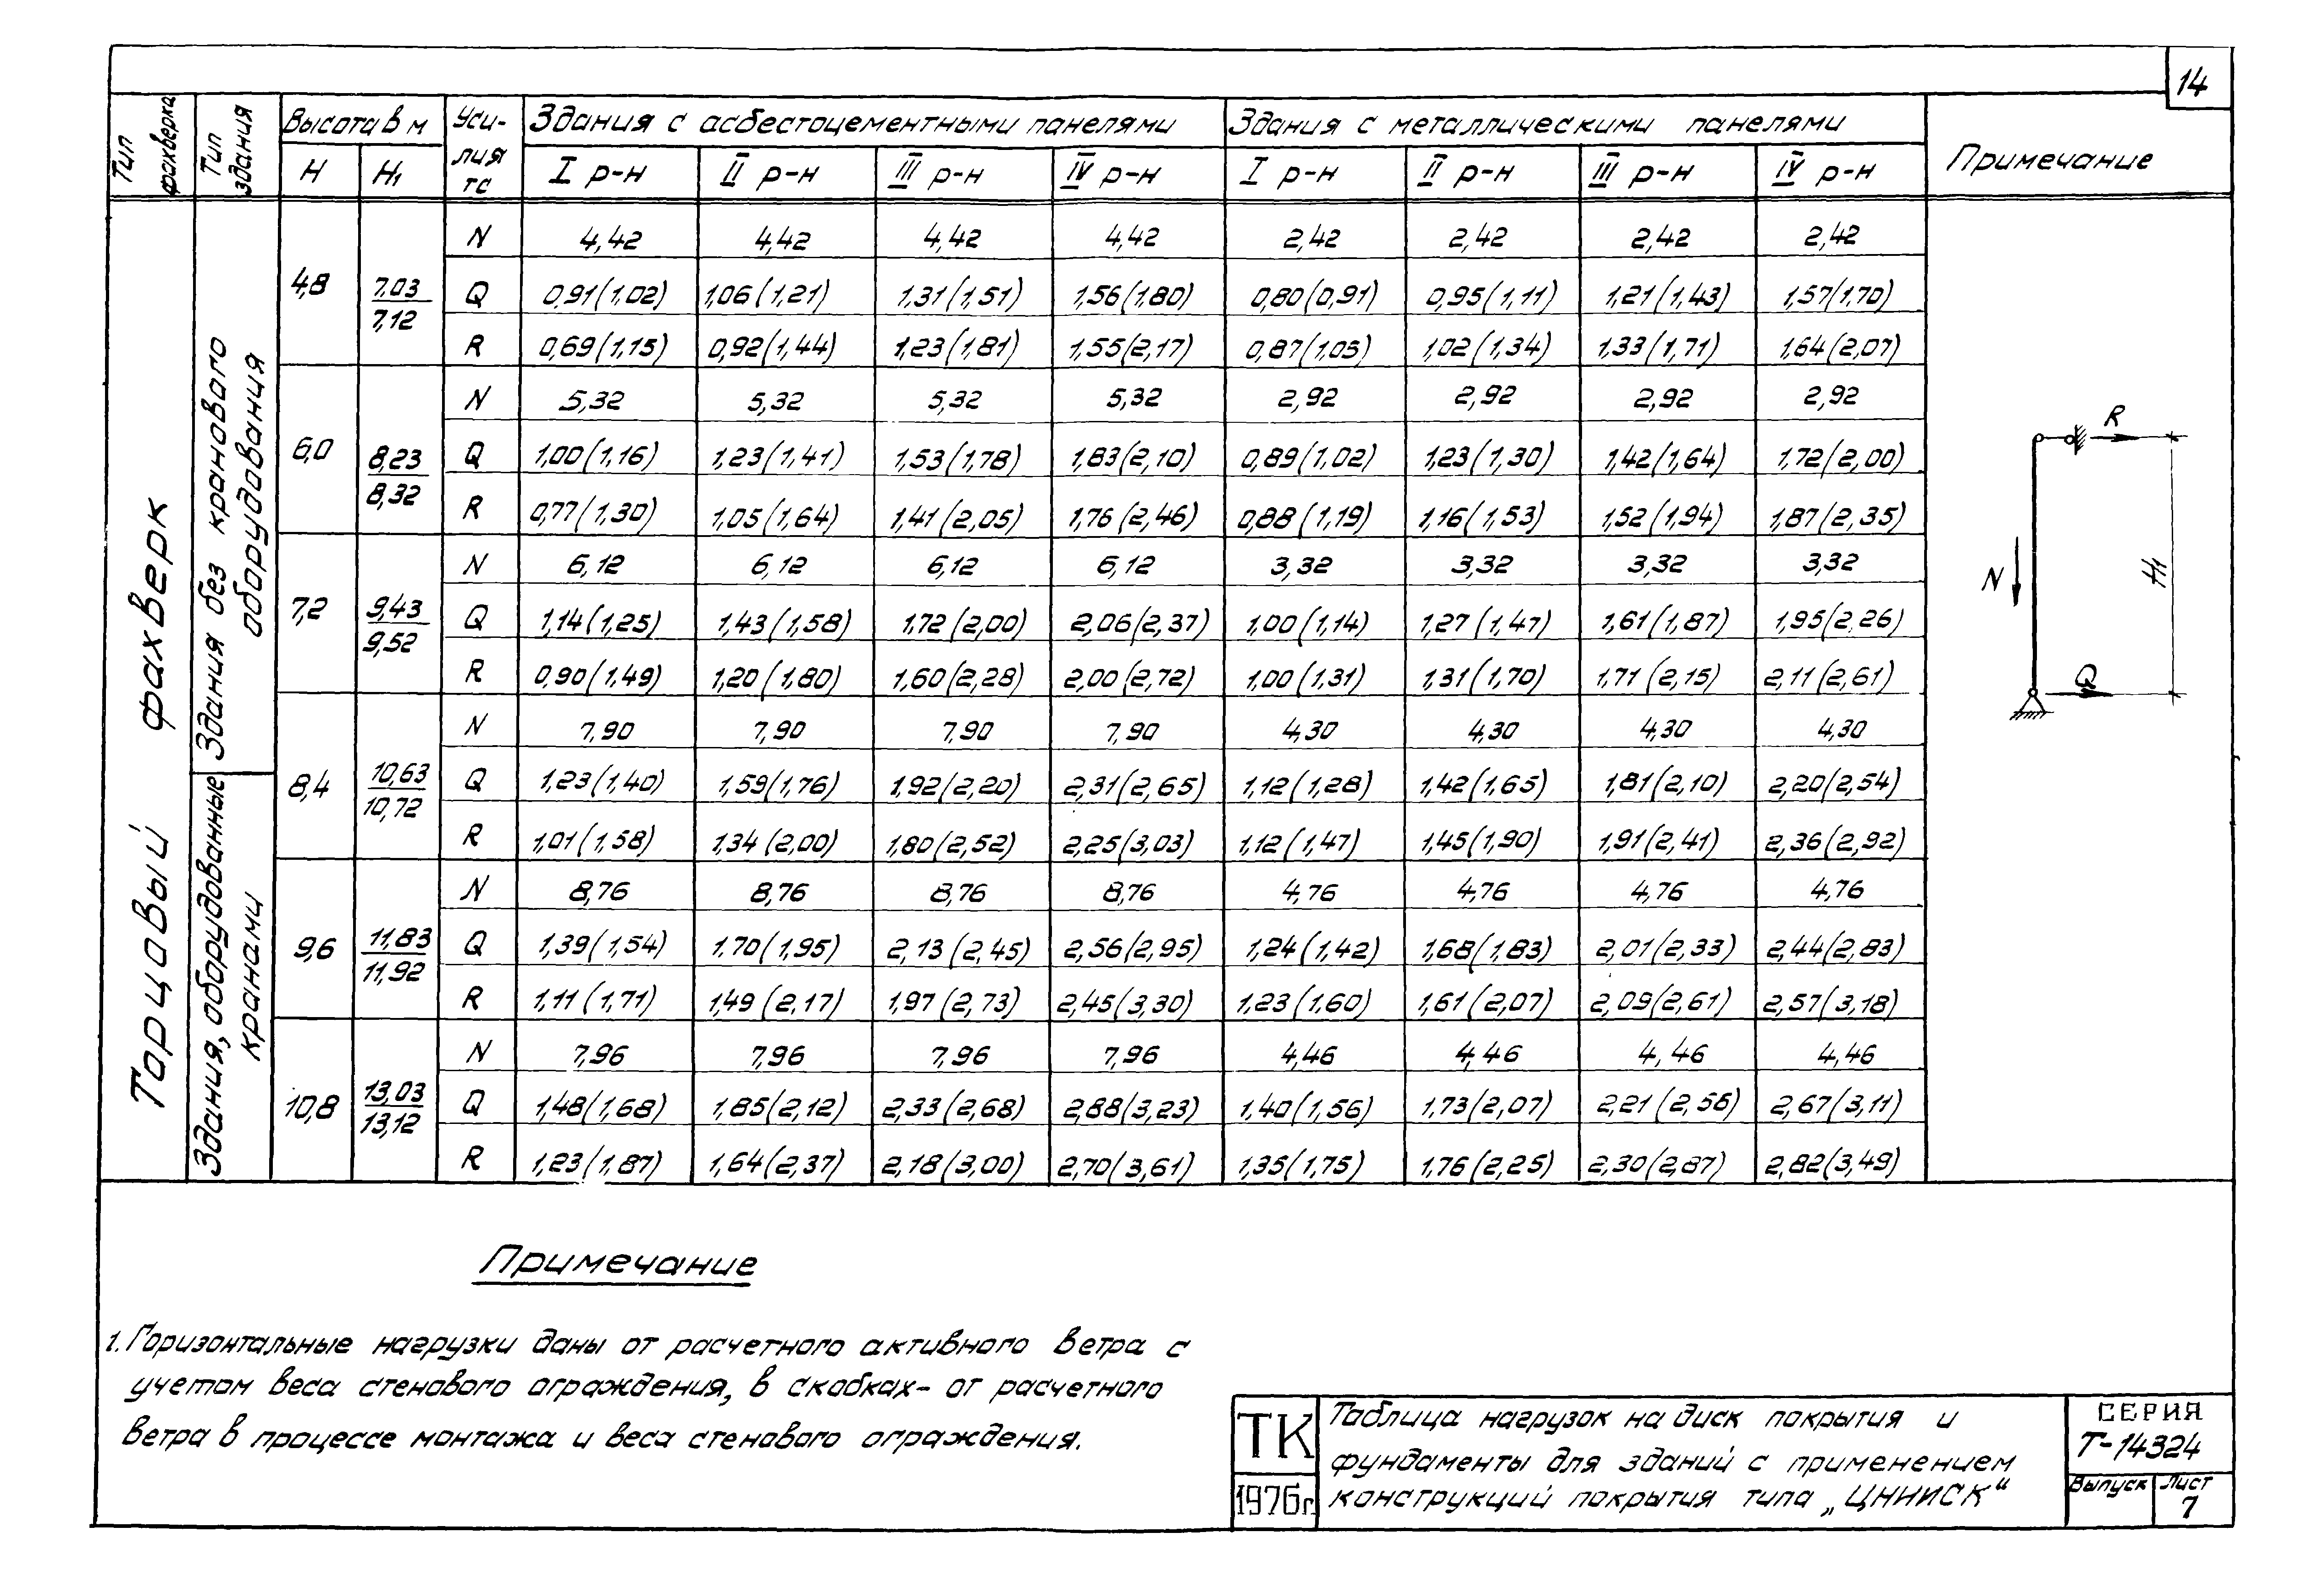 14
Тип фахверка
Тип здания
Высота в м
Уси-
лия
тс
Здания с асбестоцементными панелями
Здания с металлическими панелями
Примечание
H H₁ I р-н II р-н III р-н IV р-н I р-н II р-н III р-н IV р-н
Торцовый фахверк
Здания без кранового оборудования
Здания, оборудованные кранами
N 4,42 4,42 4,42 4,42 2,42 2,42 2,42 2,42
4,8 7,03/7,12 Q 0,91(1,02) 1,06(1,21) 1,31(1,51) 1,56(1,80) 0,80(0,91) 0,95(1,11) 1,21(1,43) 1,57(1,70)
R 0,69(1,15) 0,92(1,44) 1,23(1,81) 1,55(2,17) 0,87(1,05) 1,02(1,34) 1,33(1,71) 1,64(2,07)
N 5,32 5,32 5,32 5,32 2,92 2,92 2,92 2,92
6,0 8,23/8,32 Q 1,00(1,16) 1,23(1,41) 1,53(1,78) 1,83(2,10) 0,89(1,02) 1,23(1,30) 1,42(1,64) 1,72(2,00)
R 0,77(1,30) 1,05(1,64) 1,41(2,05) 1,76(2,46) 0,88(1,19) 1,16(1,53) 1,52(1,94) 1,87(2,35)
N 6,12 6,12 6,12 6,12 3,32 3,32 3,32 3,32
7,2 9,43/9,52 Q 1,14(1,25) 1,43(1,58) 1,72(2,00) 2,06(2,37) 1,00(1,14) 1,27(1,47) 1,61(1,87) 1,95(2,26)
R 0,90(1,49) 1,20(1,80) 1,60(2,28) 2,00(2,72) 1,00(1,31) 1,31(1,70) 1,71(2,15) 2,11(2,61)
N 7,90 7,90 7,90 7,90 4,30 4,30 4,30 4,30
8,4 10,63/10,72 Q 1,23(1,40) 1,59(1,76) 1,92(2,20) 2,31(2,65) 1,12(1,28) 1,42(1,65) 1,81(2,10) 2,20(2,54)
R 1,01(1,58) 1,34(2,00) 1,80(2,52) 2,25(3,03) 1,12(1,47) 1,45(1,90) 1,91(2,41) 2,36(2,92)
N 8,76 8,76 8,76 8,76 4,76 4,76 4,76 4,76
9,6 11,83/11,92 Q 1,39(1,54) 1,70(1,95) 2,13(2,45) 2,56(2,95) 1,24(1,42) 1,68(1,83) 2,01(2,33) 2,44(2,83)
R 1,11(1,71) 1,49(2,17) 1,97(2,73) 2,45(3,30) 1,23(1,60) 1,61(2,07) 2,09(2,61) 2,57(3,18)
N 7,96 7,96 7,96 7,96 4,46 4,46 4,46 4,46
10,8 13,03/13,12 Q 1,48(1,68) 1,85(2,12) 2,33(2,68) 2,88(3,23) 1,40(1,56) 1,73(2,07) 2,21(2,56) 2,67(3,11)
R 1,23(1,87) 1,64(2,37) 2,18(3,00) 2,70(3,61) 1,35(1,75) 1,76(2,25) 2,30(2,87) 2,82(3,49)
R
N
Q
Примечание
1. Горизонтальные нагрузки даны от расчетного активного ветра с
учетом веса стенового ограждения, в скобках- от расчетного
ветра в процессе монтажа и веса стенового ограждения.
ТК
1976г.
Таблица нагрузок на диск покрытия и
фундаменты для зданий с применением
конструкций покрытия типа „ЦНИИСК“
СЕРИЯ
Т-14324
Выпуск Лист
7